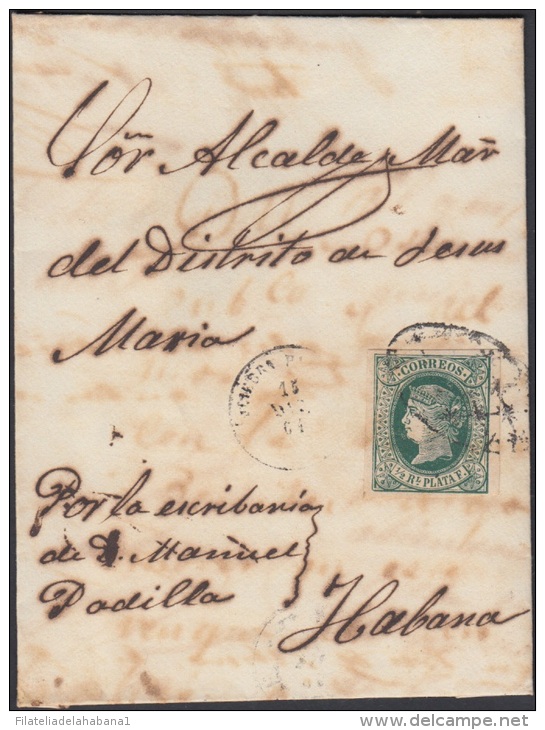 Sõr Alcalde Mar
del Distrito de Jesus
Maria
15
64
CORREOS
½ RL PLATA F.
Por la escribania
de D. Manuel
Padilla
Habana
Filateliadelahabana1
www.delcampe.net